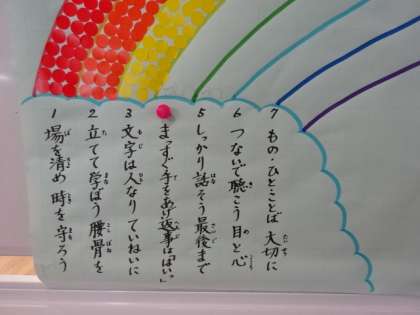 1 場を清め 時を守ろう
2 立てて学ぼう 腰骨を
3 文字は人なり ていねいに
まっすぐ手をあげ返事は「はい」
5 しっかり話そう最後まで
6 つないで聴こう 目と心
7 もの・ひとことば 大切に